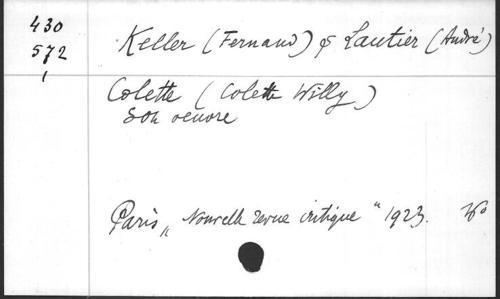 430
572
Keller (Fernand) & Lautier (André)
Colette (Colette Willy)
Son oeuvre
Paris „Nouvelle revue critique" 1923.